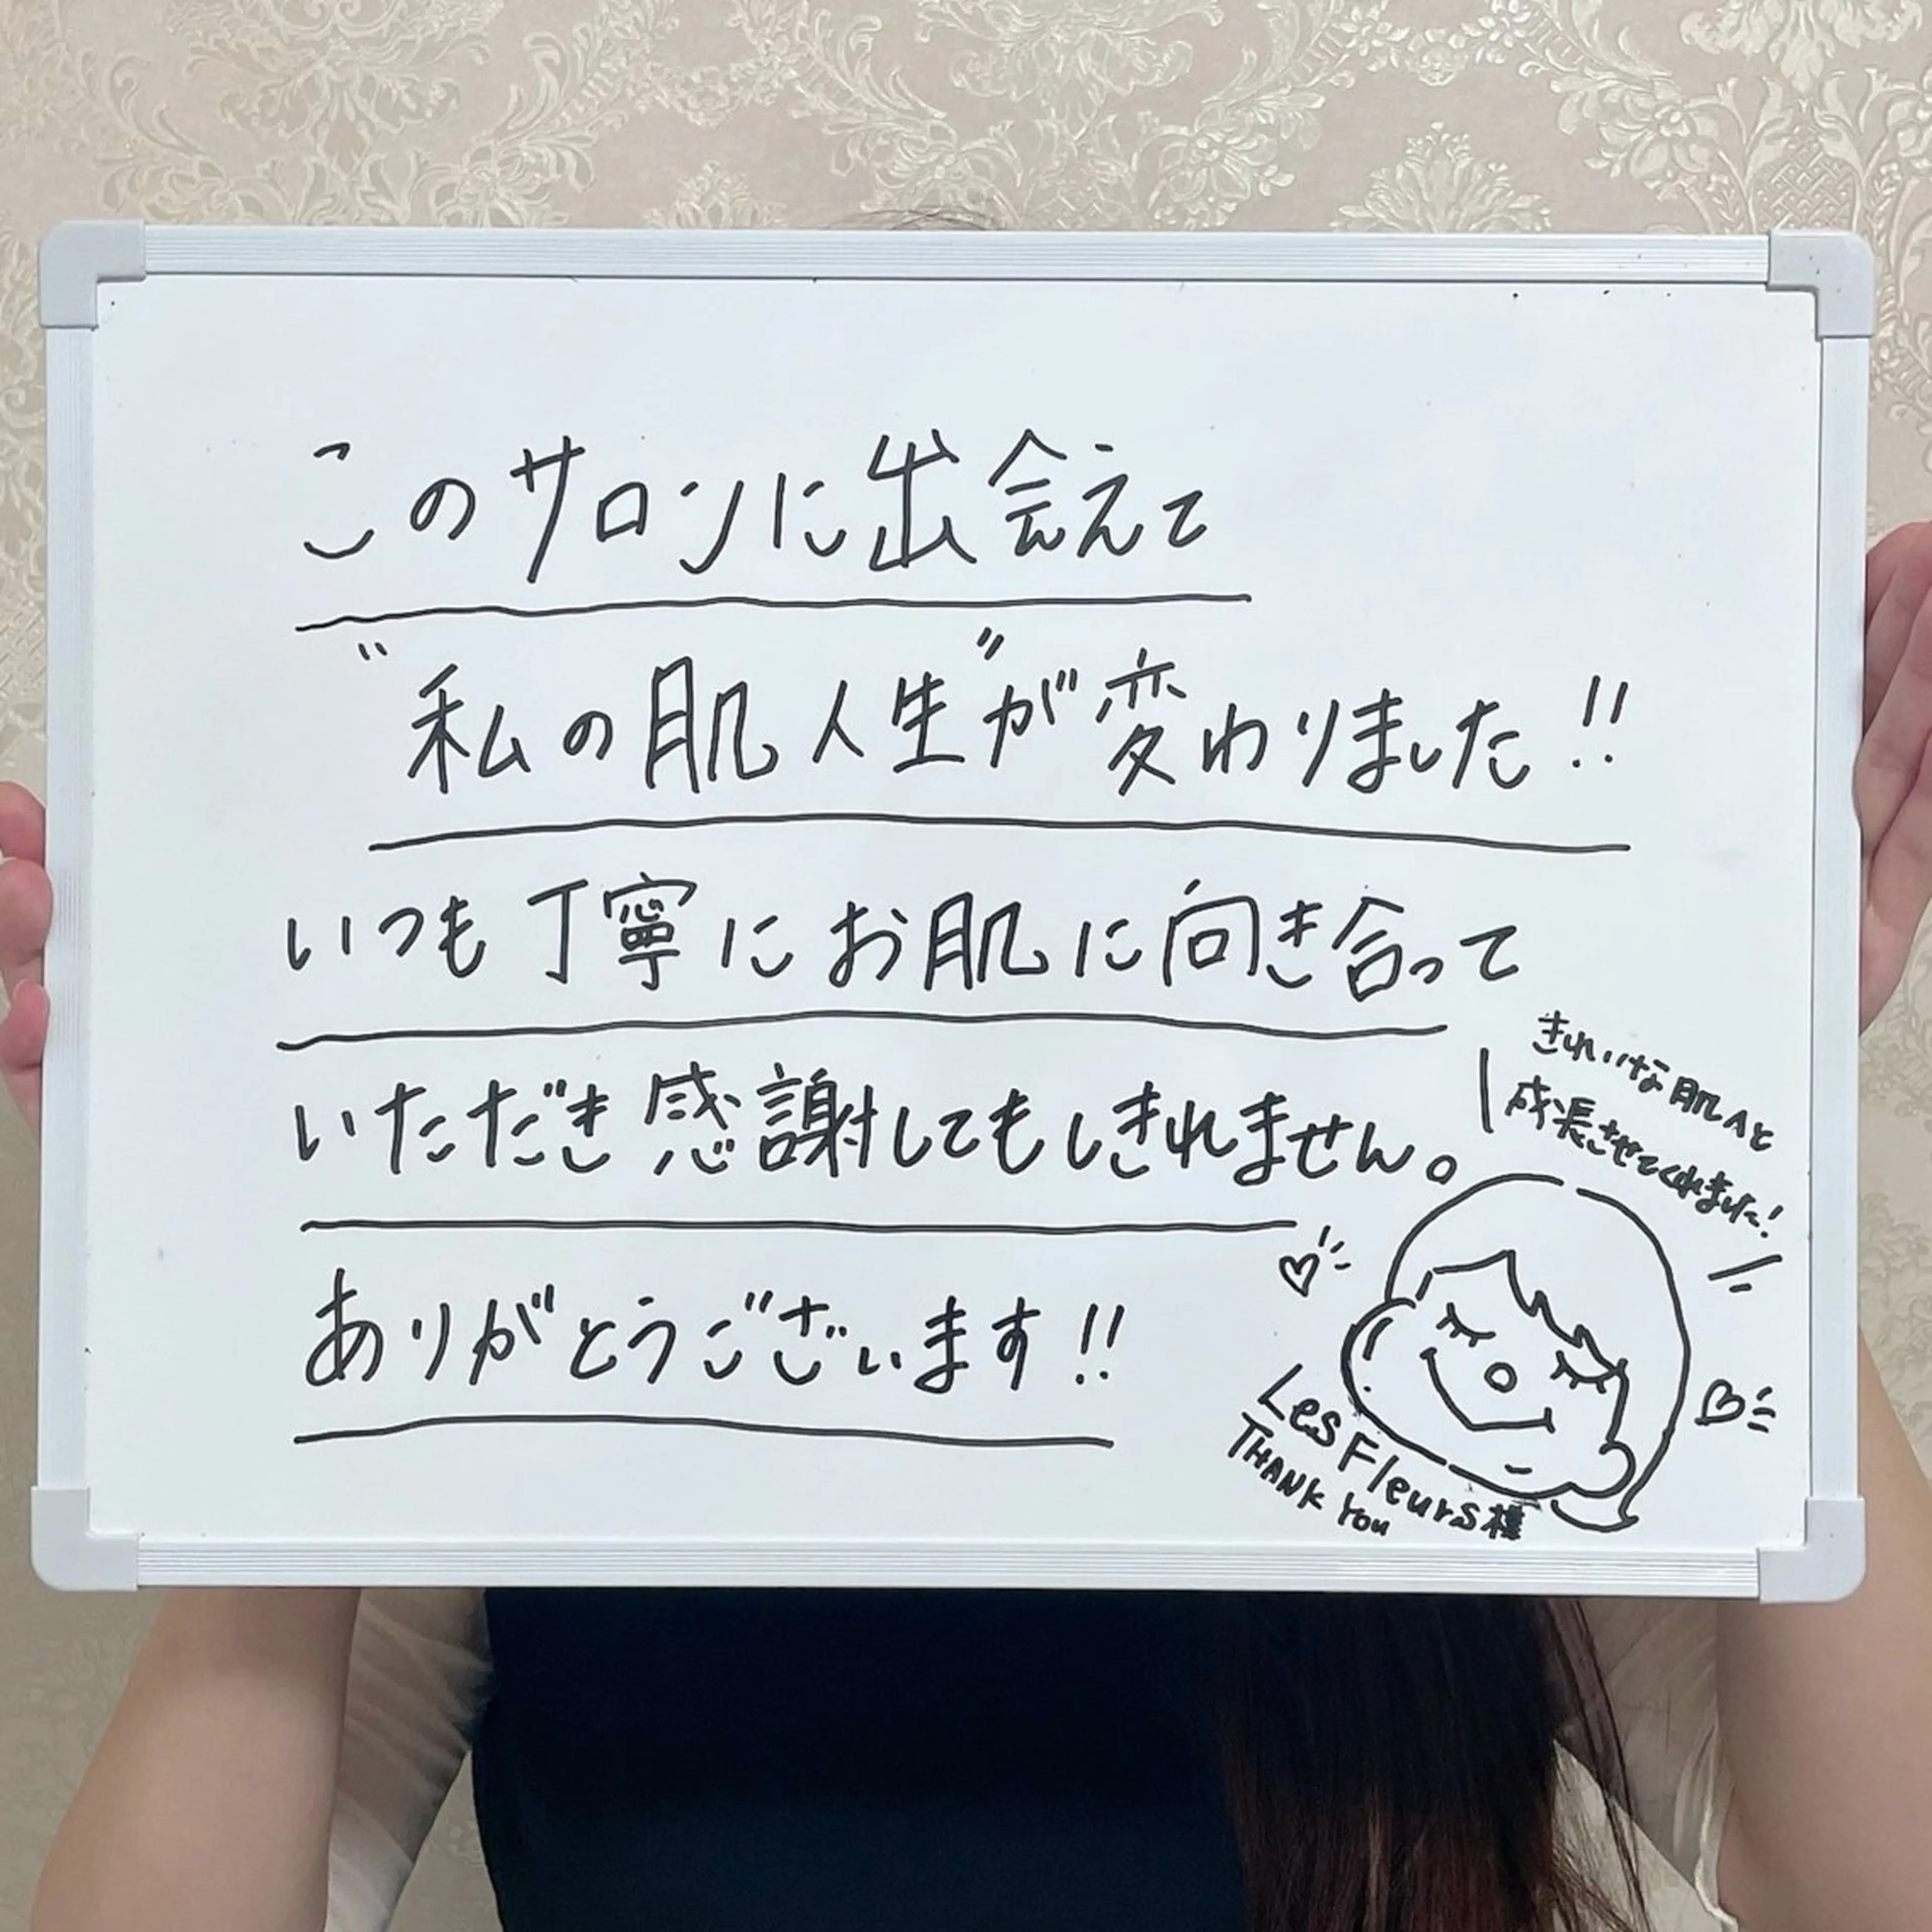 このサロンに出会えて
"私の肌人生"が変わりました!!
いつも丁寧にお肌に向き合って
いただき感謝してもしきれません。
ありがとうございます!!
きれいな肌へと
成長させてくれました!
Les Fleurs様
THANK YOU